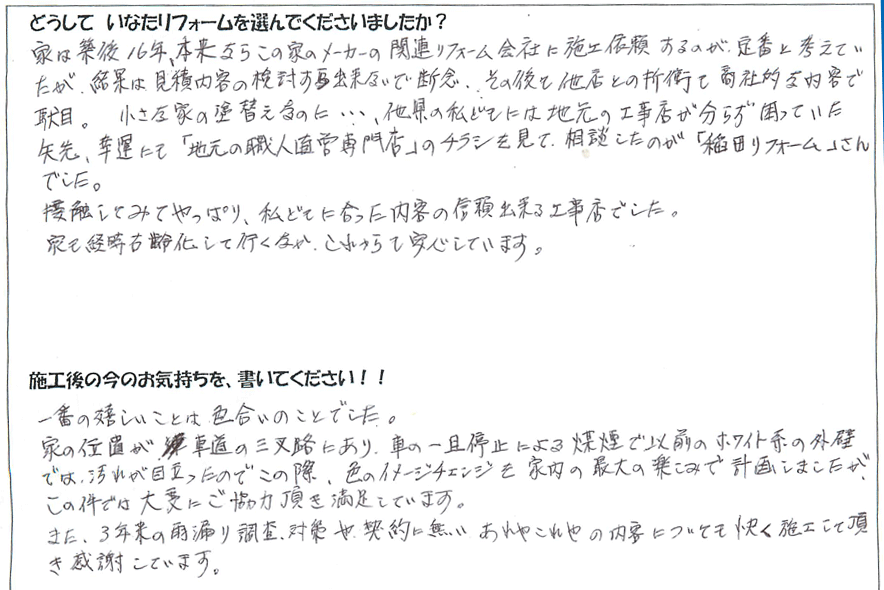 どうして いなたリフォームを選んでくださいましたか？
家は築後16年、本来ならこの家のメーカーの関連リフォーム会社に施工依頼するのが、定番と考えてい
たが、結果は見積内容の検討す出来ないで断念、その後も他店との折衝も商社的な内容で
駄目。 小さな家の塗替えなのに・・・、他県の私どもには地元の工事店が分らず困っていた
矢先、幸運にも「地元の職人直営専門店」のチラシを見て、相談したのが「稲田リフォーム」さん
でした。
接触してみてやっぱり、私どもに合った内容の信頼出来る工事店でした。
家も経時古齢化して行くなか、これからも安心しています。
施工後の今のお気持ちを、書いてください！！
一番の嬉しいことは色合いのことでした。
家の位置が 車道の三叉路にあり、車の一旦停止による煤煙で以前のホワイト系の外壁
では、汚れが目立ったのでこの際、色のイメージチェンジを家内の最大の楽しみで計画しましたが、
この件では大変にご協力頂き満足しています。
また、3年来の雨漏り調査、対策や、契約に無い、あれやこれやの内容についても快く施工して頂
き感謝しています。